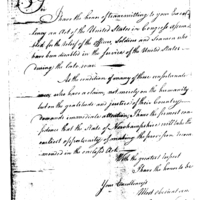 I have the honor of transmitting to your Excel-
lency an Act of the United States in Congress assem-
bled for the relief of the officers, Soldiers and Seamen who
have been disabled in the service of the United States
during the late war.
As the condition of many of these unfortunate
men who have a claim, not merely on the humanity
but on the gratitude and justice of their Country
demands immediate attention, I have the firmest con-
fidence that the State of Newhampshire will take the
earliest opportunity of making the provision recom-
mended in the enclosed Act.
With the greatest respect
I have the honor to be
Your Excellency's
Most obedient